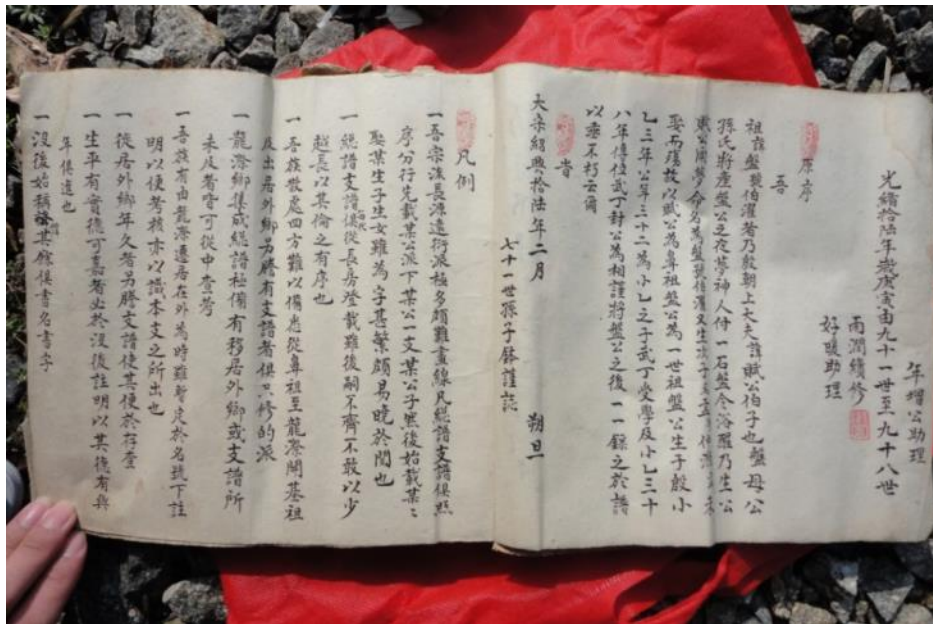 年增公助理
光緒拾陆年歲庚寅由九十一世至九十八世
雨潤續修
好暖助理
原序
吾
祖諱盤號伯濯者乃殷朝上大夫諱賦公伯子也盤母公
孫氏將產盤公之夜夢神人付一石盤令浴醒乃生公
命名為盤號伯濯又生次子
娶而殤故以賦公為鼻祖盤公為一世祖盤公生子殷小
乙三年公年三十二為小乙之子武丁受學及小乙三十
八年傳位武丁封公為相謹將盤公之後一一錄之於譜
以垂不朽云爾
旹
大宋紹興拾陆年二月 朔旦
七十一世孫子謹誌
凡例
一吾宗流長源遠衍派極多頗難畫線凡總譜支譜俱照
序分行先載某公派下某公一支某公子然後始載某々
娶某生子生女雖為字甚繁頗易曉於閱也
一總譜支譜俱從長房登載雖後嗣不齊不敢以少
越長以其倫之有序也
一吾族散處四方難以備悉從鼻祖至龍漈開基祖
及出居外鄉另謄有支譜者俱只修的派
一龍漈鄉集成總譜極備有移居外鄉或支譜所
未及者皆可從中查考
一吾族有由龍漈遷居在外為時雖暫定於名號下註
明以便考核亦以識本支之所出也
一徙居外鄉年久者另謄支譜使其便於存查
一生平有實德可嘉者必於沒後註明以其德有與
年俱進也
一沒後始稱諡其餘俱書名書字